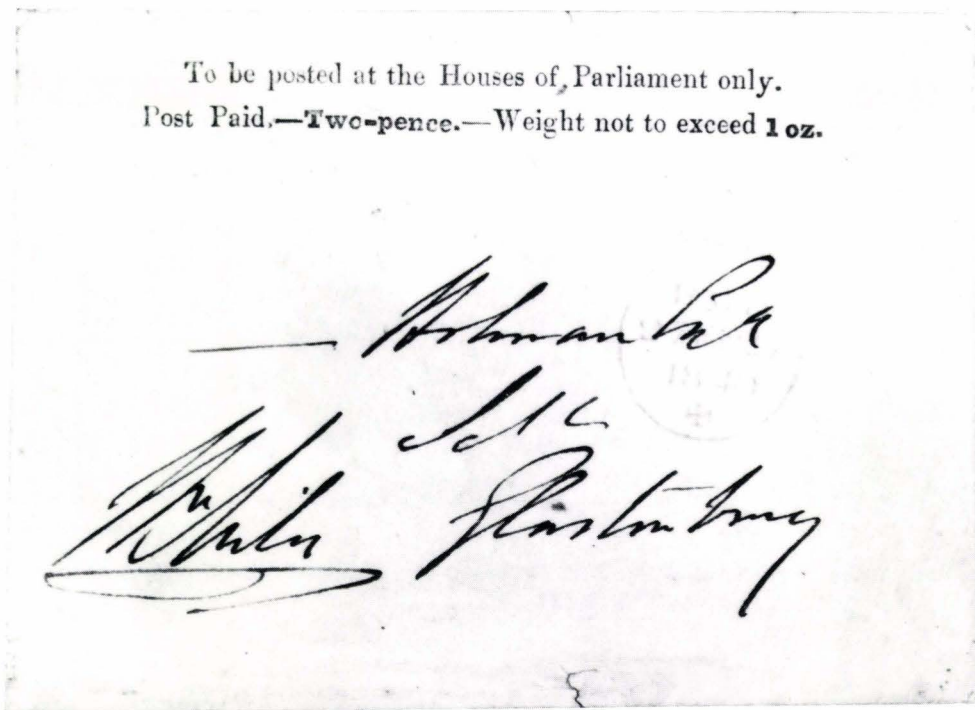 To be posted at the Houses of Parliament only.
Post Paid.—Two-pence.—Weight not to exceed 1 oz.
— Holman
Glastonbury